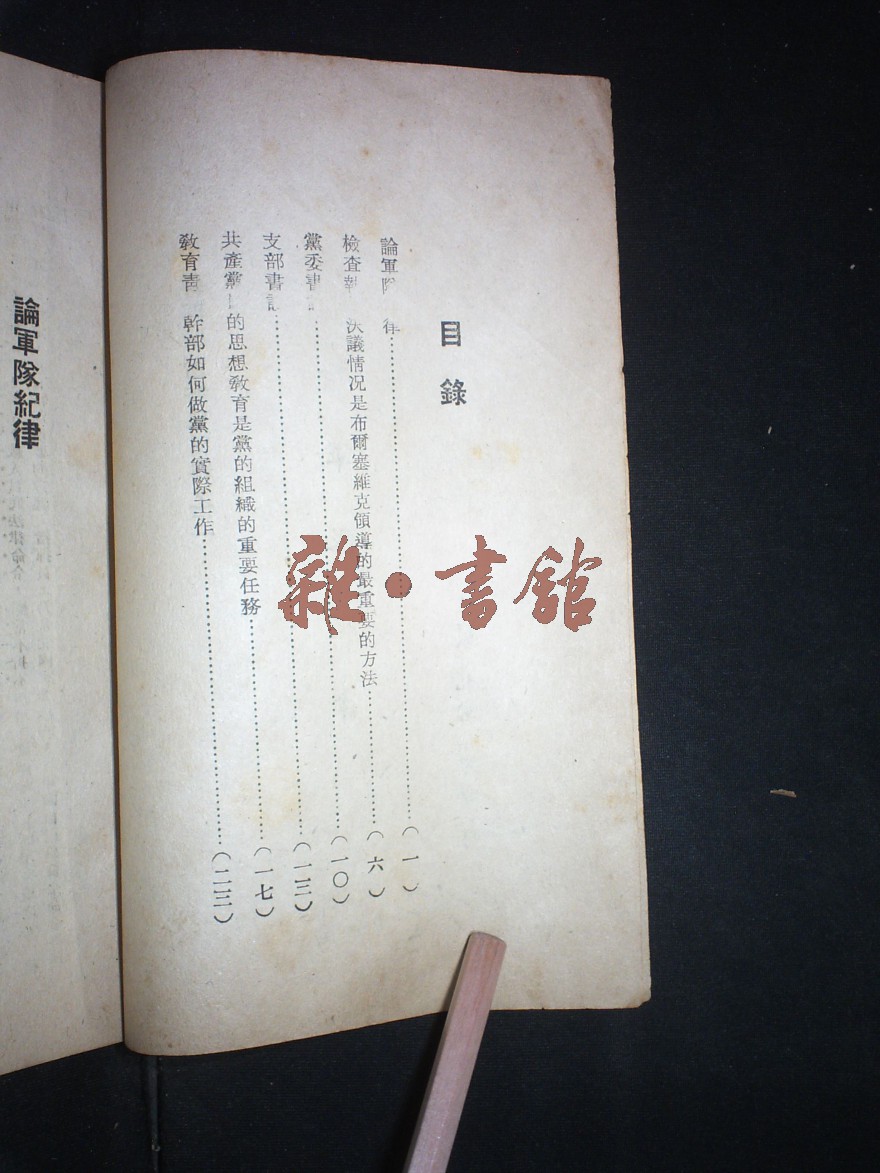 目錄
論軍隊 律……(一)
檢查 決議情况是布爾塞維克領導的最重要的方法……(六)
黨委書 ……(一〇)
支部書記……(一三)
共產黨 的思想教育是黨的組織的重要任務……(一七)
教育青 幹部如何做黨的實際工作……(二三)
論軍隊紀律
雜·書舘